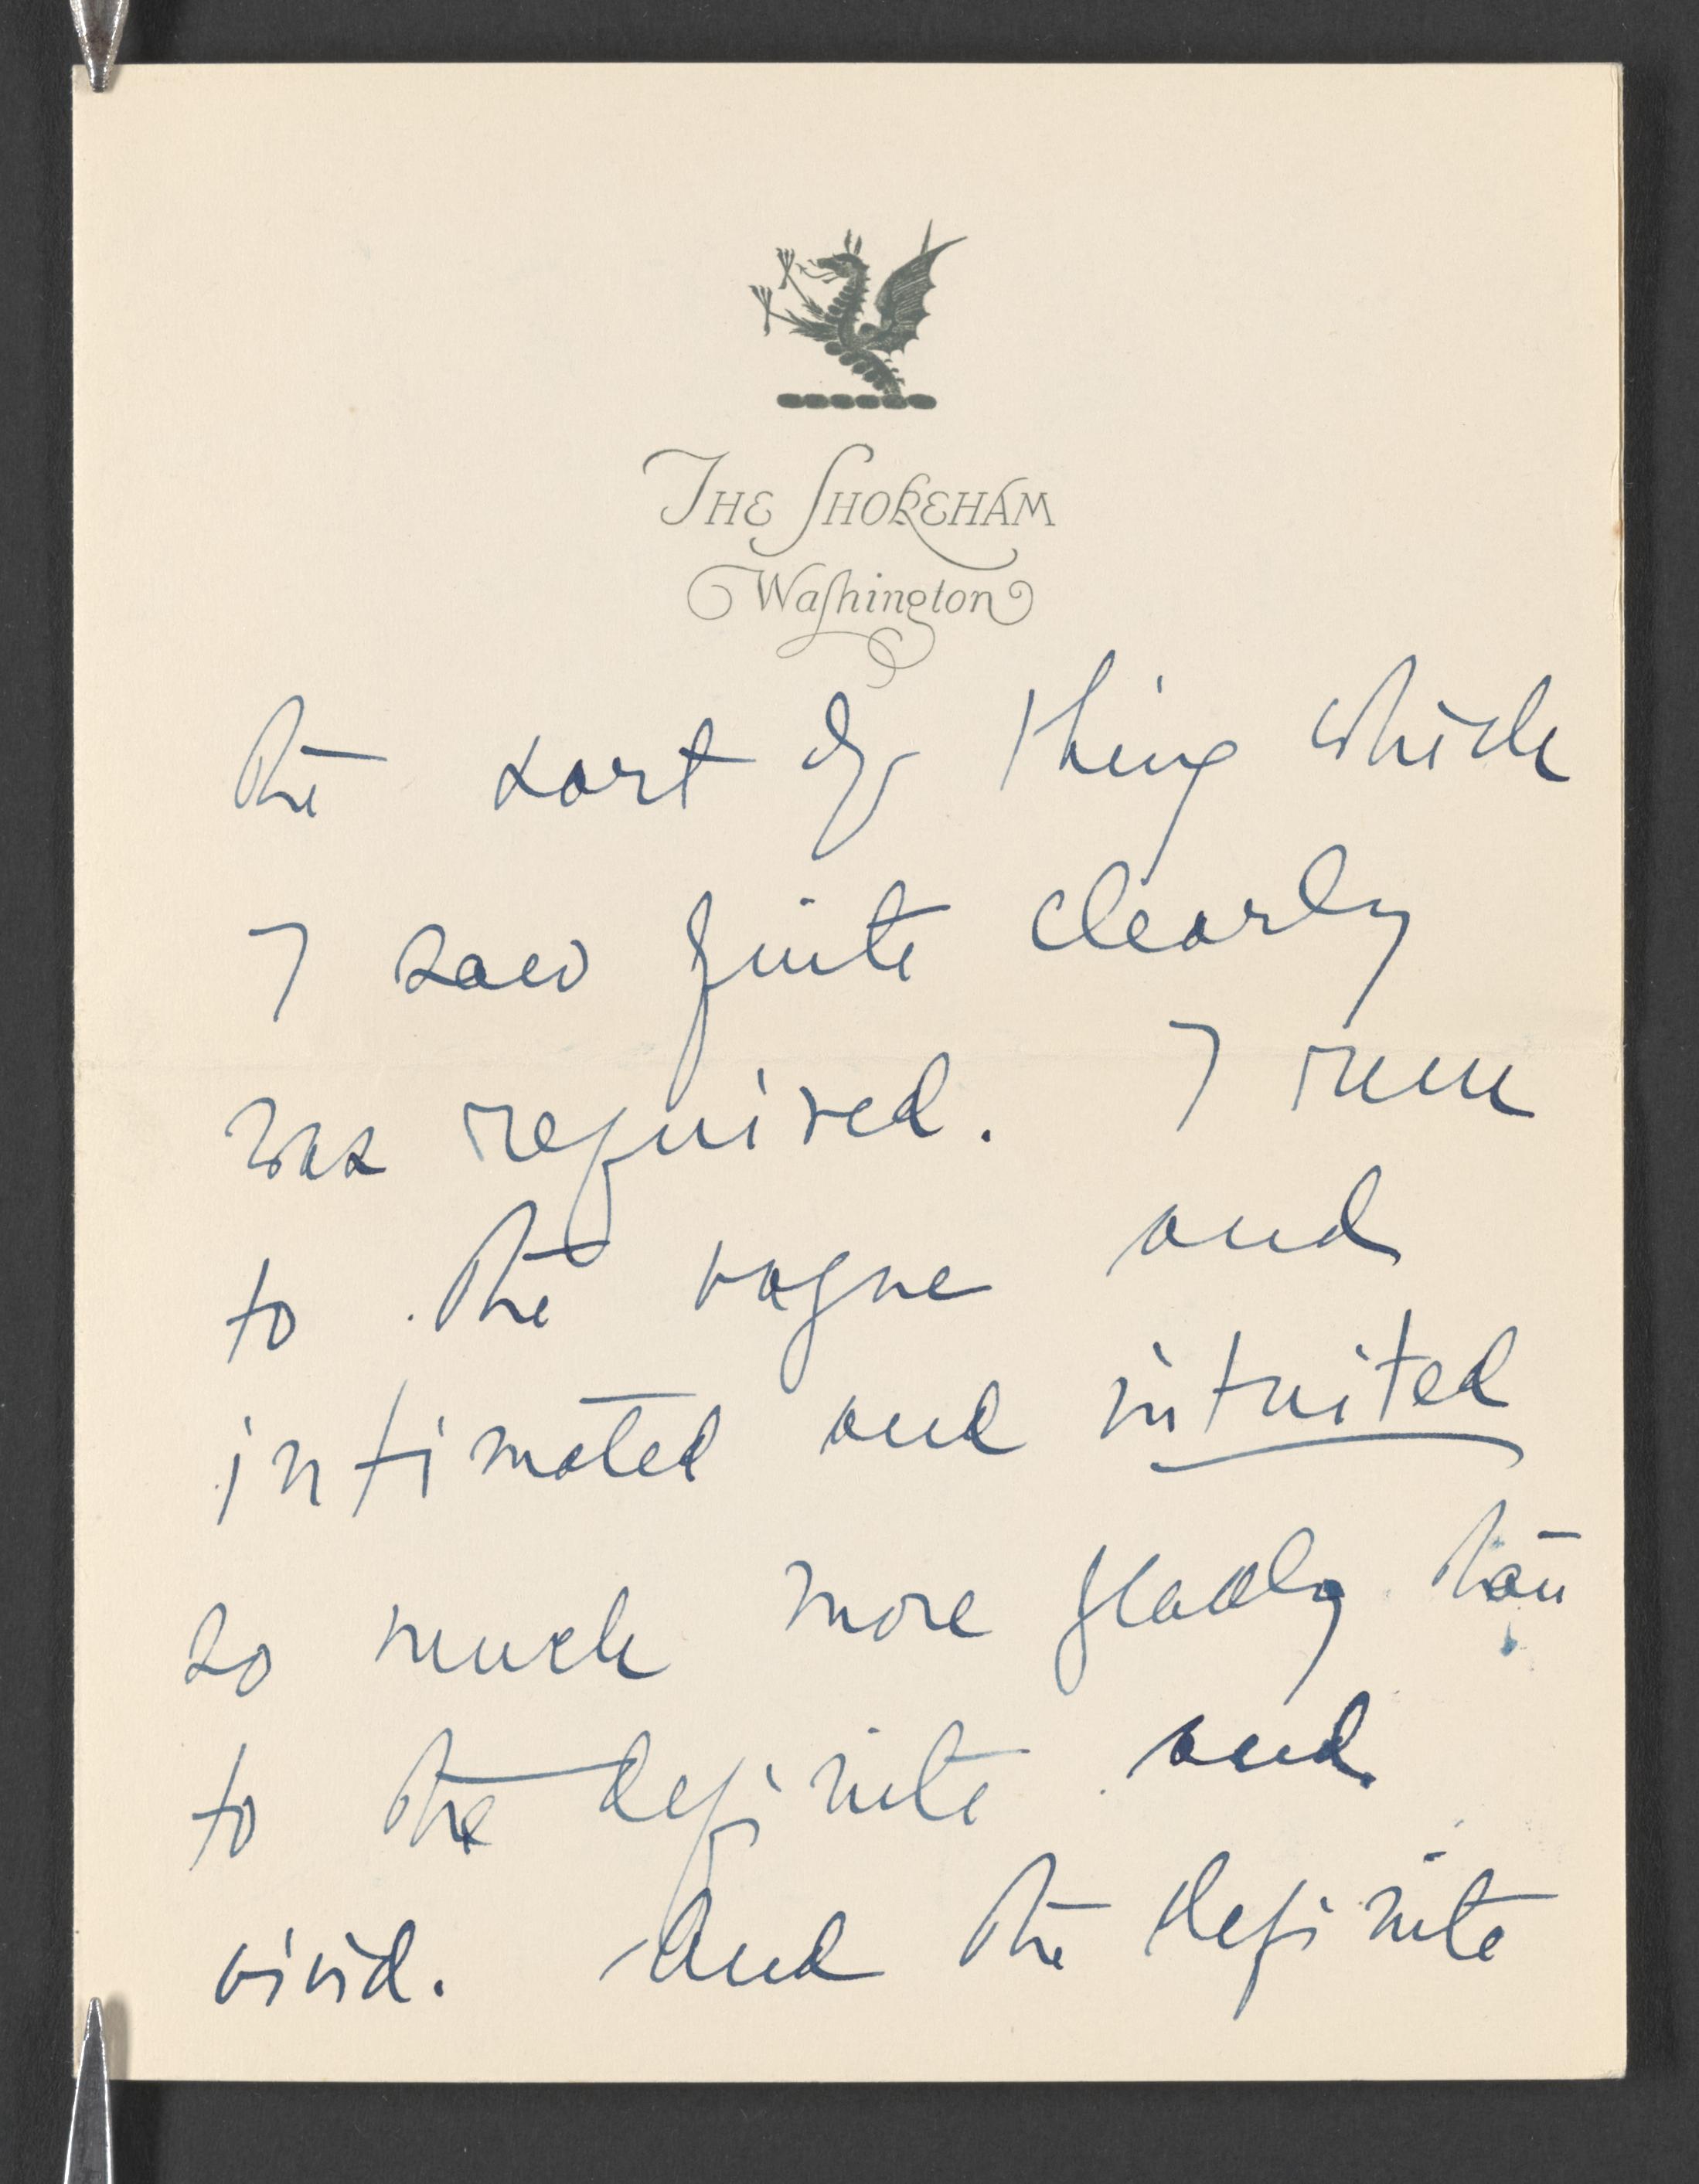 THE SHOREHAM
Washington
the sort of thing which
I saw quite clearly
was required. I run
to the vague and
intimated and intuited
so much more gladly than
to the definite and
vivid. And the definite